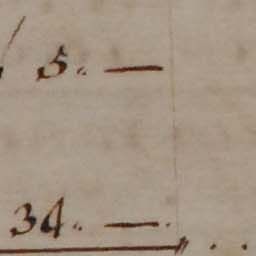 5. —
34. —